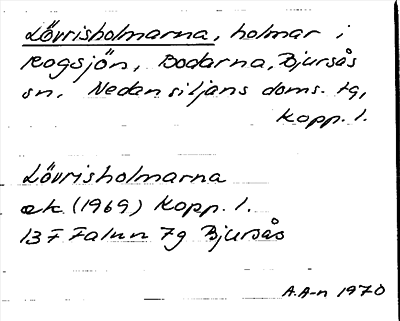 Lövrisholmarna, holmar i
Rogsjön, Bodarna, Bjursås
sn. Nedansiljans doms. tg,
Kopp. l.
Lövrisholmarna
ek (1969) Kopp. l.
13 F Falun 7g Bjursås
A.A-n 1970